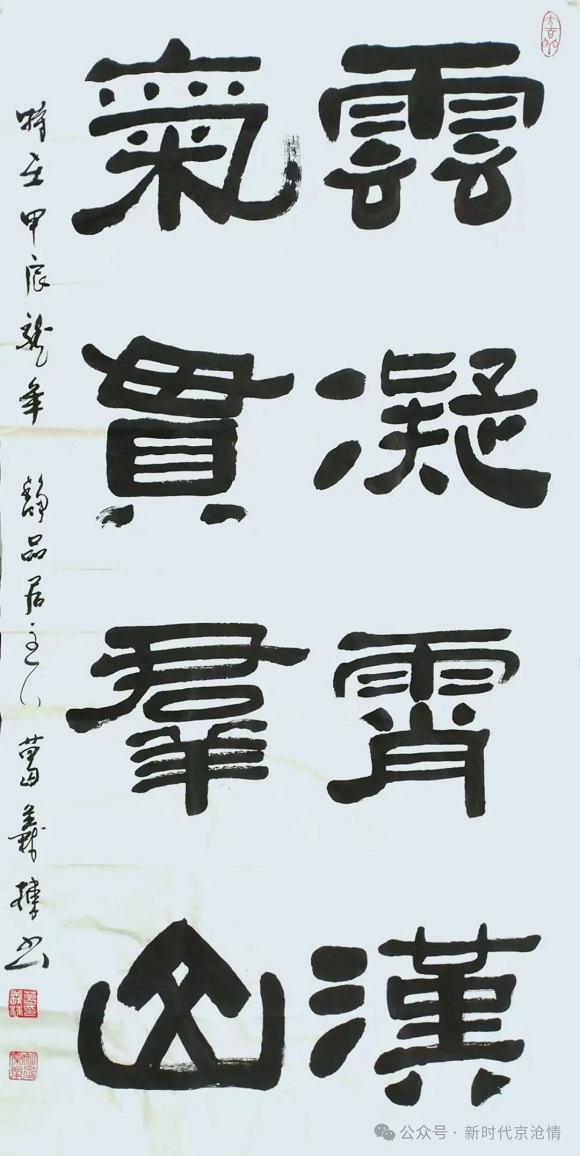 雲凝霄漢
氣貫羣山
時在甲辰龍年 靜品居主人 葛義書
公众号·新时代京沧情